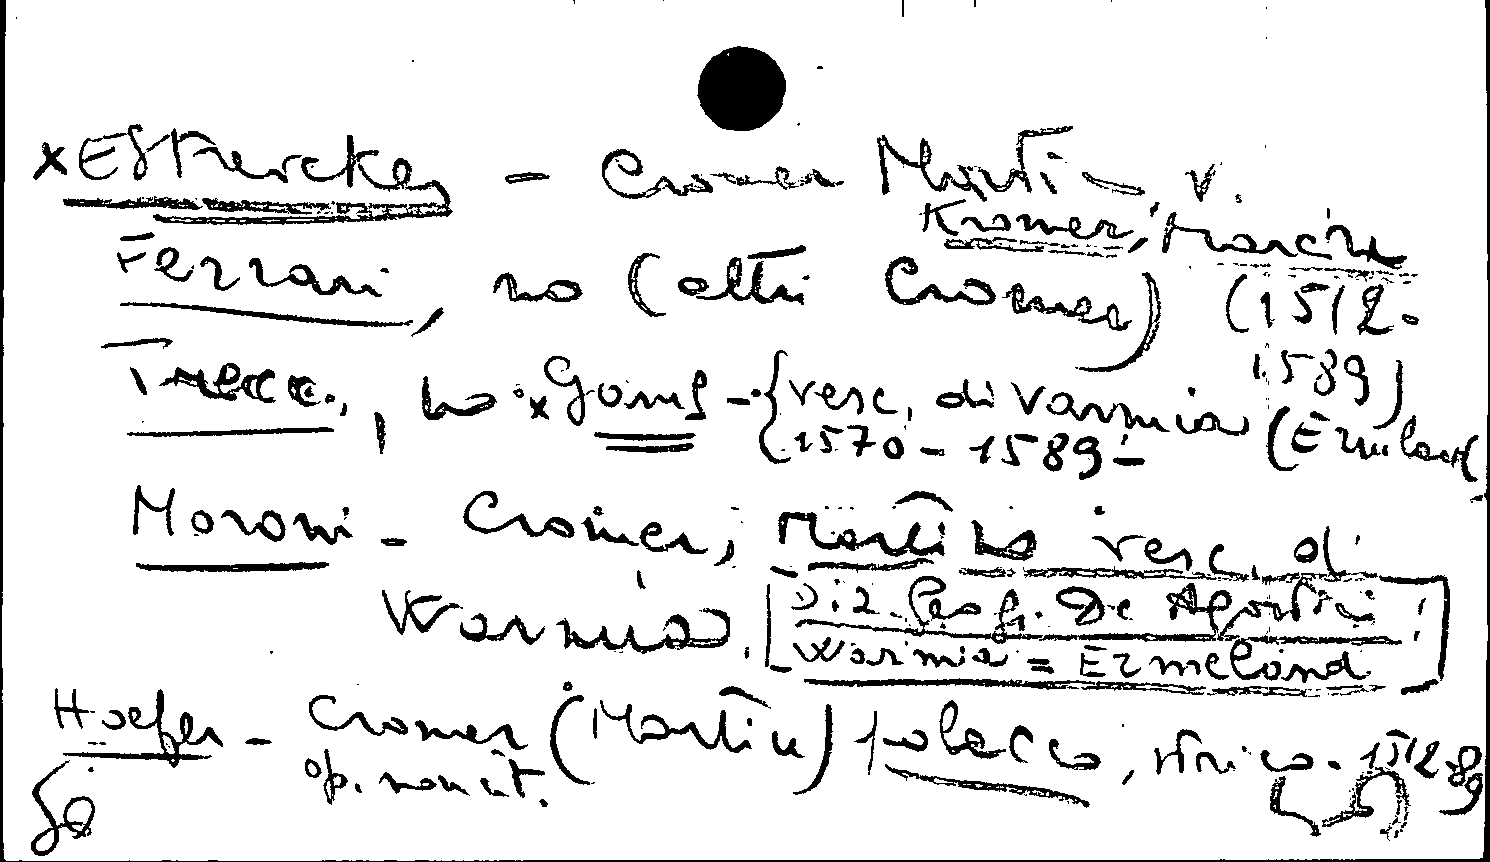 x Estreicher - Cromer Martin, v.
Kromer, Marcin
Ferrari, no (altri Cromer) (1512-
1589)
Trecc., no x Gams - {vesc. di Varmia (Ermland
{1570 - 1589 -
Moroni - Cromer, Martino vesc. di
Warmia. [Diz. Geogr. De Agostini:
Warmia = Ermeland]
Hoefer - Cromer (Martin) polacco, storico. 1512-89
op. non cit.